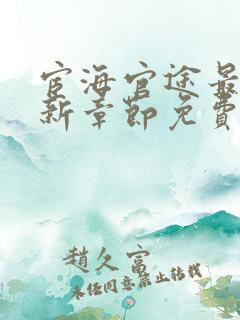 宦海官途最
新章節免費
趙久富
未經同意禁止轉載